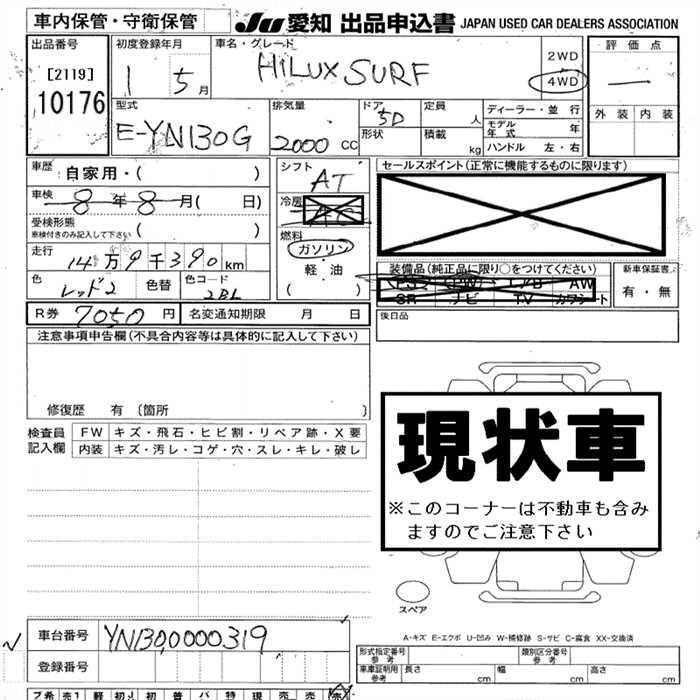 車内保管・守衛保管
JU 愛知 出品申込書 JAPAN USED CAR DEALERS ASSOCIATION
出品番号 初度登録年月 車名・グレード 評価点
[2119] 1 5月 HiLUX SURF 2WD
10176 4WD —
型式 排気量 ドア 定員 人 ディーラー・並行 外装 内装
E-YN130G 2000 CC 5D モデル年式 年
形状 積載 kg ハンドル 左・右
車歴 自家用・( ) シフト AT セールスポイント(正常に機能するものに限ります)
車検 8年8月( 日) 冷房
受検形態
車検付きのみ記入して下さい ( ) 燃料
走行 14万9千390km ガソリン
色 レッド2 色替 色コード 2BL 軽油 ( )
装備品(純正品に限り○をつけてください) 新車保証書
PS PW エアB AW 有・無
SR ナビ TV カワシート
R券 7050円 名変通知期限 月 日 後日品
注意事項申告欄(不具合内容等は具体的に記入して下さい)
修復歴 有 〔箇所 〕
検査員 FW キズ・飛石・ヒビ割・リペア跡・X要
記入欄 内装 キズ・汚レ・コゲ・穴・スレ・キレ・破レ
現状車
※このコーナーは不動車も含み
ますのでご注意下さい
スペア
A-キズ E-エクボ U-凹み W-補修跡 S-サビ C-腐食 XX-交換済
車台番号 YN1300000319
形式指定番号 参考 類別区分番号 参考
登録番号
車車証明用 参考 長さ 幅 高さ